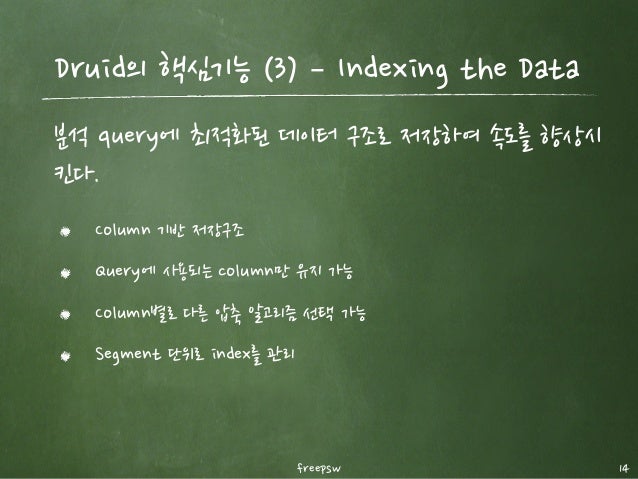 Druid의 핵심기능 (3) - Indexing the Data
분석 query에 최적화된 데이터 구조로 저장하여 속도를 향상시
킨다.
Column 기반 저장구조
Query에 사용되는 column만 유지 가능
Column별로 다른 압축 알고리즘 선택 가능
Segment 단위로 index를 관리
freepsw
14